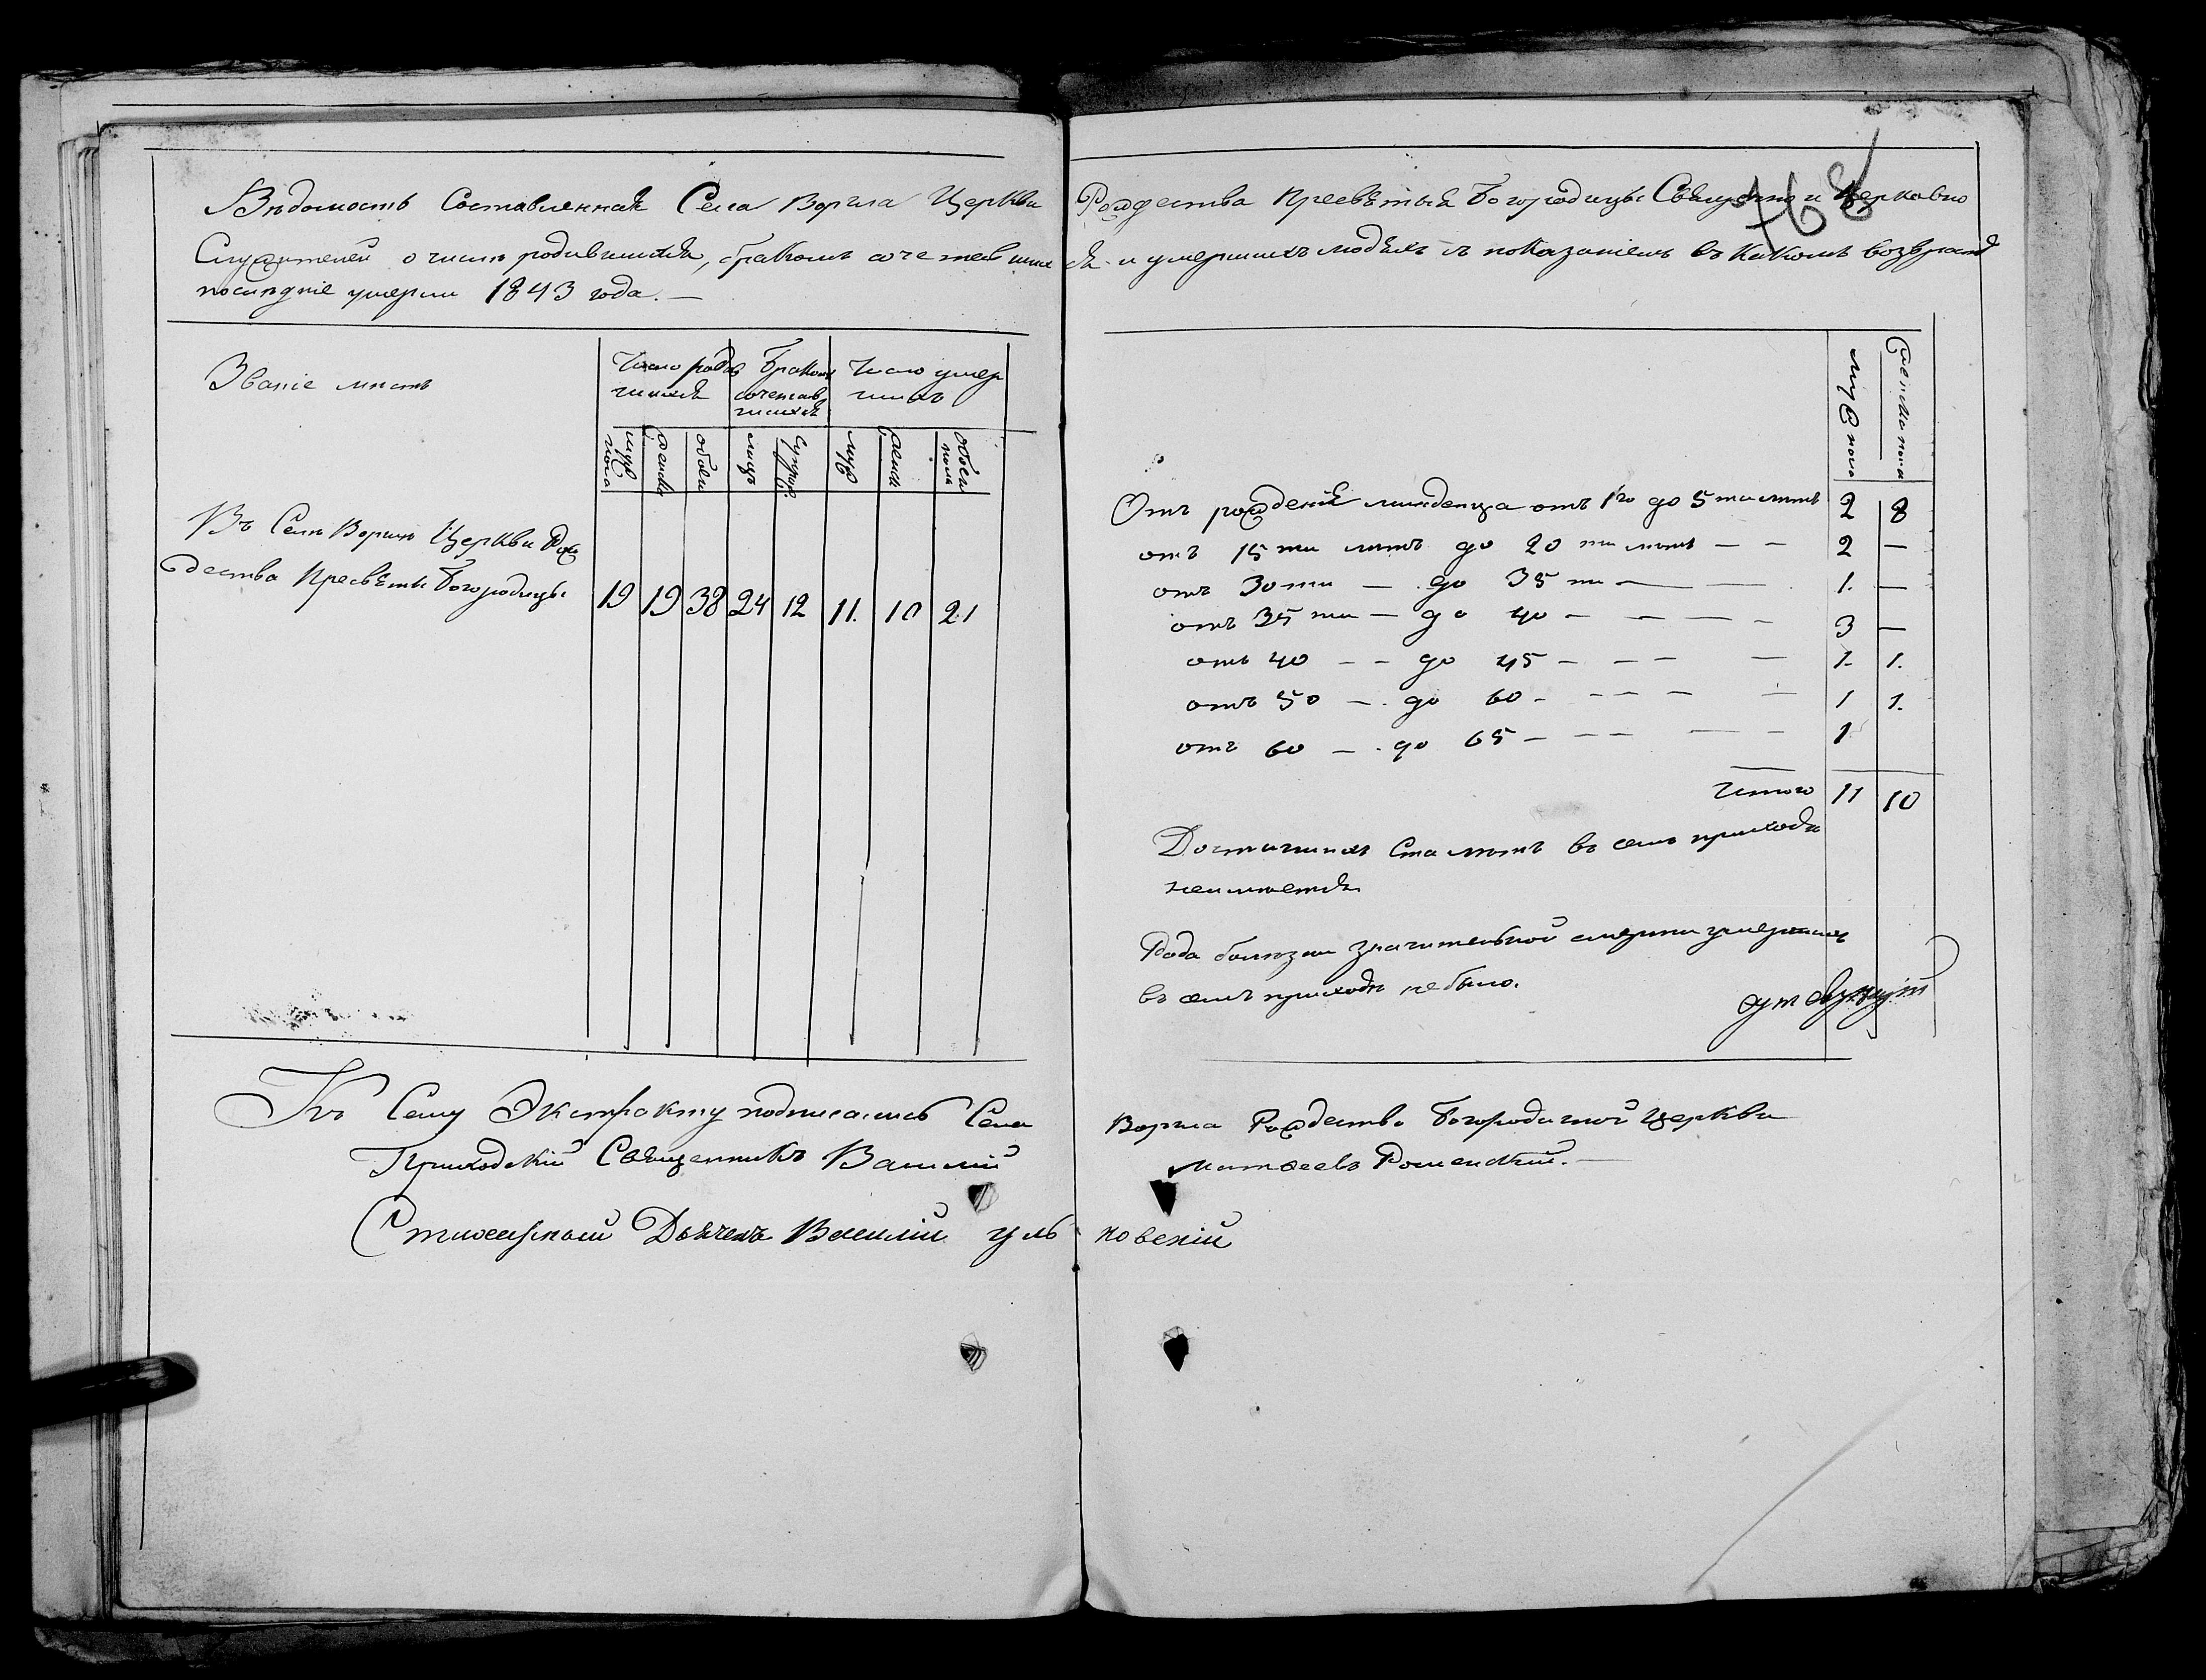 Вѣдомость Составленная Села Воргла Церкви Рождества Пресвѣтыя Богородицы Священно и Церковно
Служителей о числѣ родившихся, бракомъ сочетавшихся и умершихъ людяхъ съ показаніемъ въ какомъ возврастѣ
послѣдніе умерли 1843 года. —
168
Званіе мѣстъ
Число родив Бракомъ Число умер
шихся сочетав шихъ
шихся
муж пола женска обоего лицъ супруж. муж женск обоего пола
Въ Селѣ Воргле Церкви Рож
дества Пресвѣтыя Богородицы 19 19 38 24 12 11. 10 21
муж пола женска пола
Отъ рожденія младенца отъ 1го до 5 ти лѣтъ 2 8
отъ 15 ти лѣтъ до 20 ти лѣтъ — — 2 —
отъ 30 ти — до 35 ти — — 1. —
отъ 35 ти — до 40 — — — — 3 —
отъ 40 — — до 45 — — — — 1. 1.
отъ 50 — до 60 — — — — — 1 1.
отъ 60 — до 65 — — — — — 1
Итого 11 10
Достигшихъ Ста лѣтъ въ семъ приходѣ
неимѣется
Рода болѣзни значительной смерти умершихъ
въ семъ приходѣ не было.
Къ Сему Экстракту подписались Села Воргла Рождество Богородичной Церкви
Приходскій Священникъ Василій Матфеевъ Роменскій. —
Стихарный Дьячекъ Василій Ульновскій